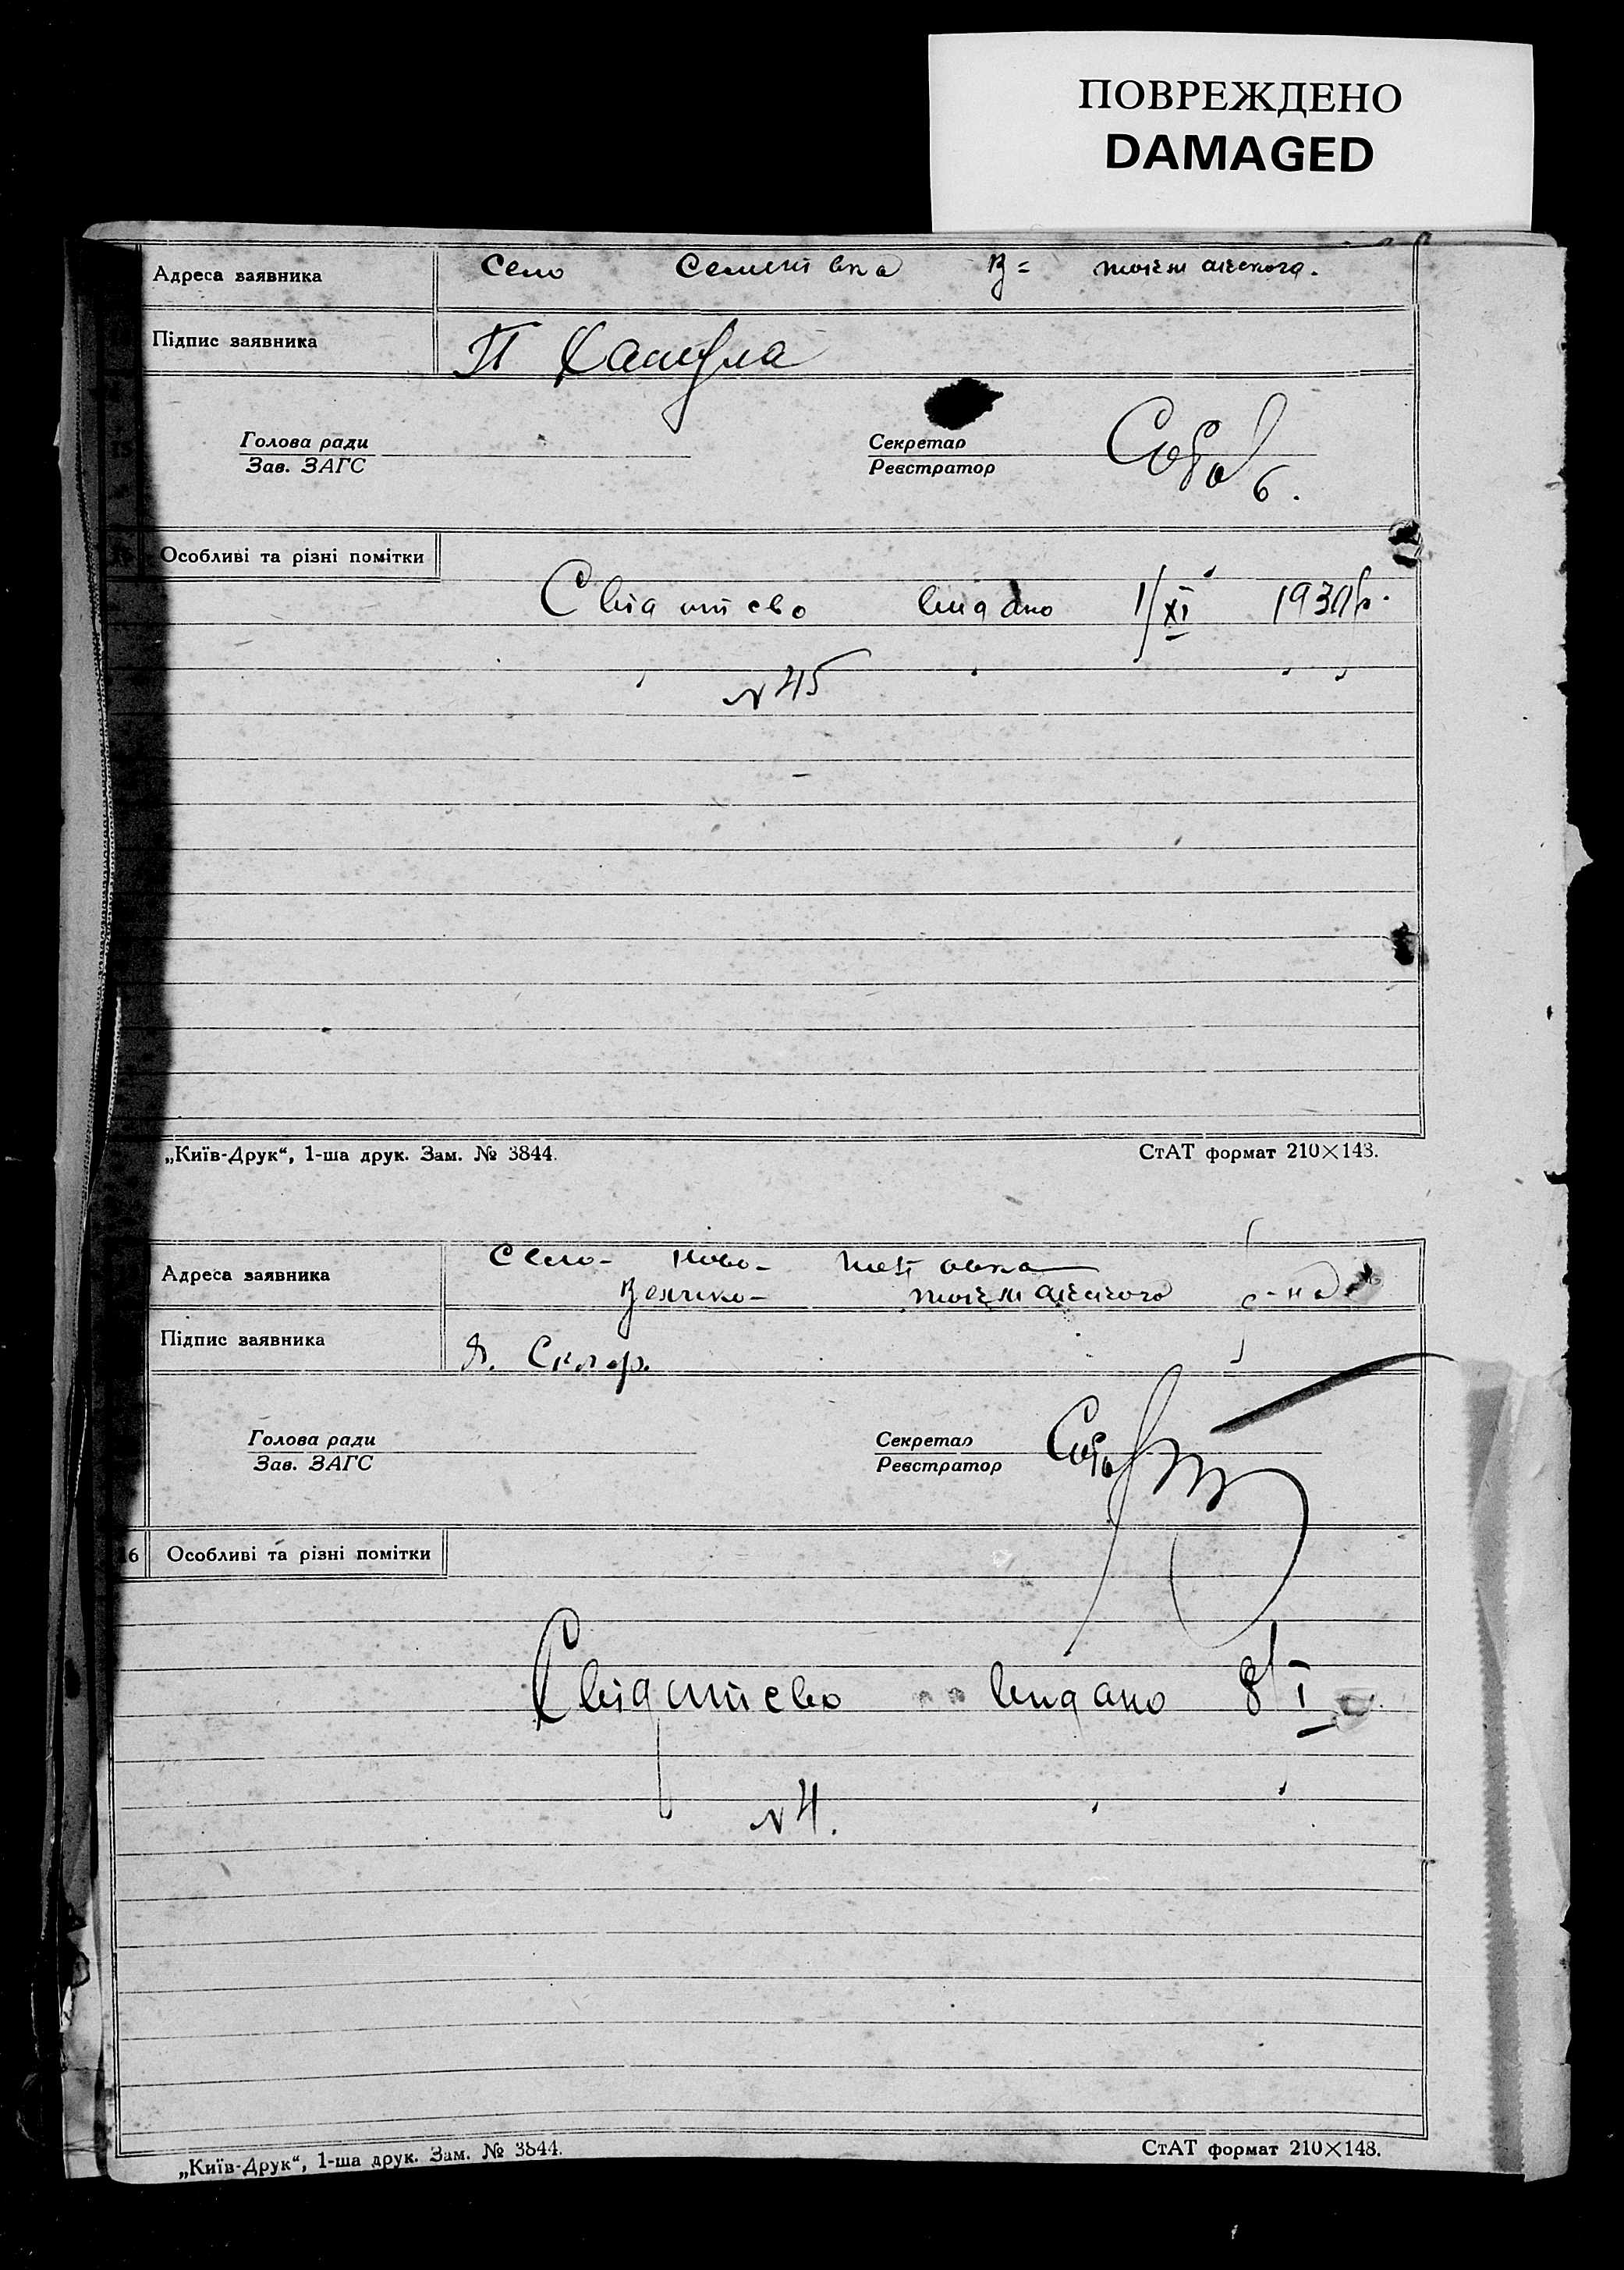 ПОВРЕЖДЕНО
DAMAGED
Адреса заявника Село В=
Підпис заявника П
Голова ради Секретар
Зав. ЗАГС Реєстратор
Особливі та різні помітки
Свідотсво видано 1/XI
№ 45
„Київ-Друк“, 1-ша друк. Зам. № 3844. СтАТ формат 210×148.
Адреса заявника Село- Ново-
Велико- р-на
Підпис заявника Я. Скляр.
Голова ради Секретар
Зав. ЗАГС Реєстратор
16 Особливі та різні помітки
Свідотсво видано 8/I
№ 4.
„Київ-Друк“, 1-ша друк. Зам. № 3844. СтАТ формат 210×148.